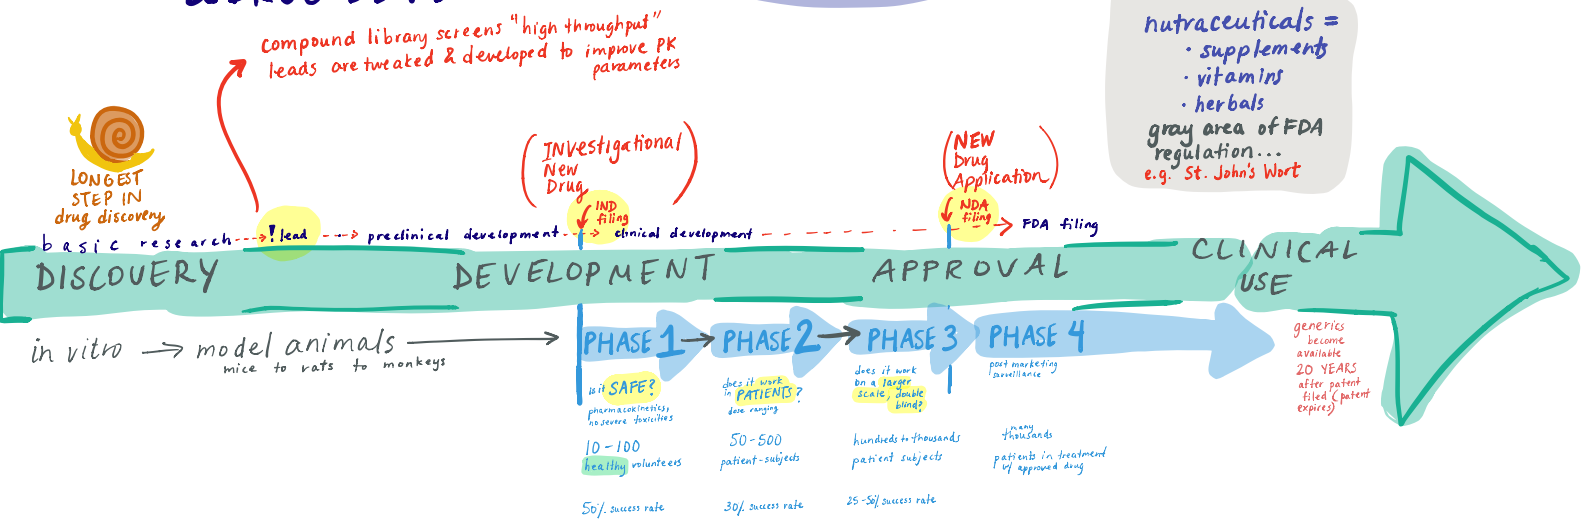 compound library screens "high throughput"
leads are tweaked & developed to improve PK
parameters
nutraceuticals =
· supplements
· vitamins
· herbals
gray area of FDA
regulation...
e.g. St. John's Wort
LONGEST
STEP IN
drug discovery
(INVestigational
New
Drug)
(NEW
Drug
Application)
IND
filing
NDA
filing
basic research
! lead
preclinical development
clinical development
FDA filing
DISCOVERY
DEVELOPMENT
APPROVAL
CLINICAL
USE
in vitro → model animals
mice to rats to monkeys
PHASE 1
is it SAFE?
pharmacokinetics,
no severe toxicities
10-100
healthy volunteers
50% success rate
PHASE 2
does it work
in PATIENTS?
dose ranging
50-500
patient-subjects
30% success rate
PHASE 3
does it work
on a larger
scale, double
blind?
hundreds to thousands
patient subjects
25-50% success rate
PHASE 4
post marketing
surveillance
many
thousands
patients in treatment
w/ approved drug
generics
become
available
20 YEARS
after patent
filed (patent
expires)